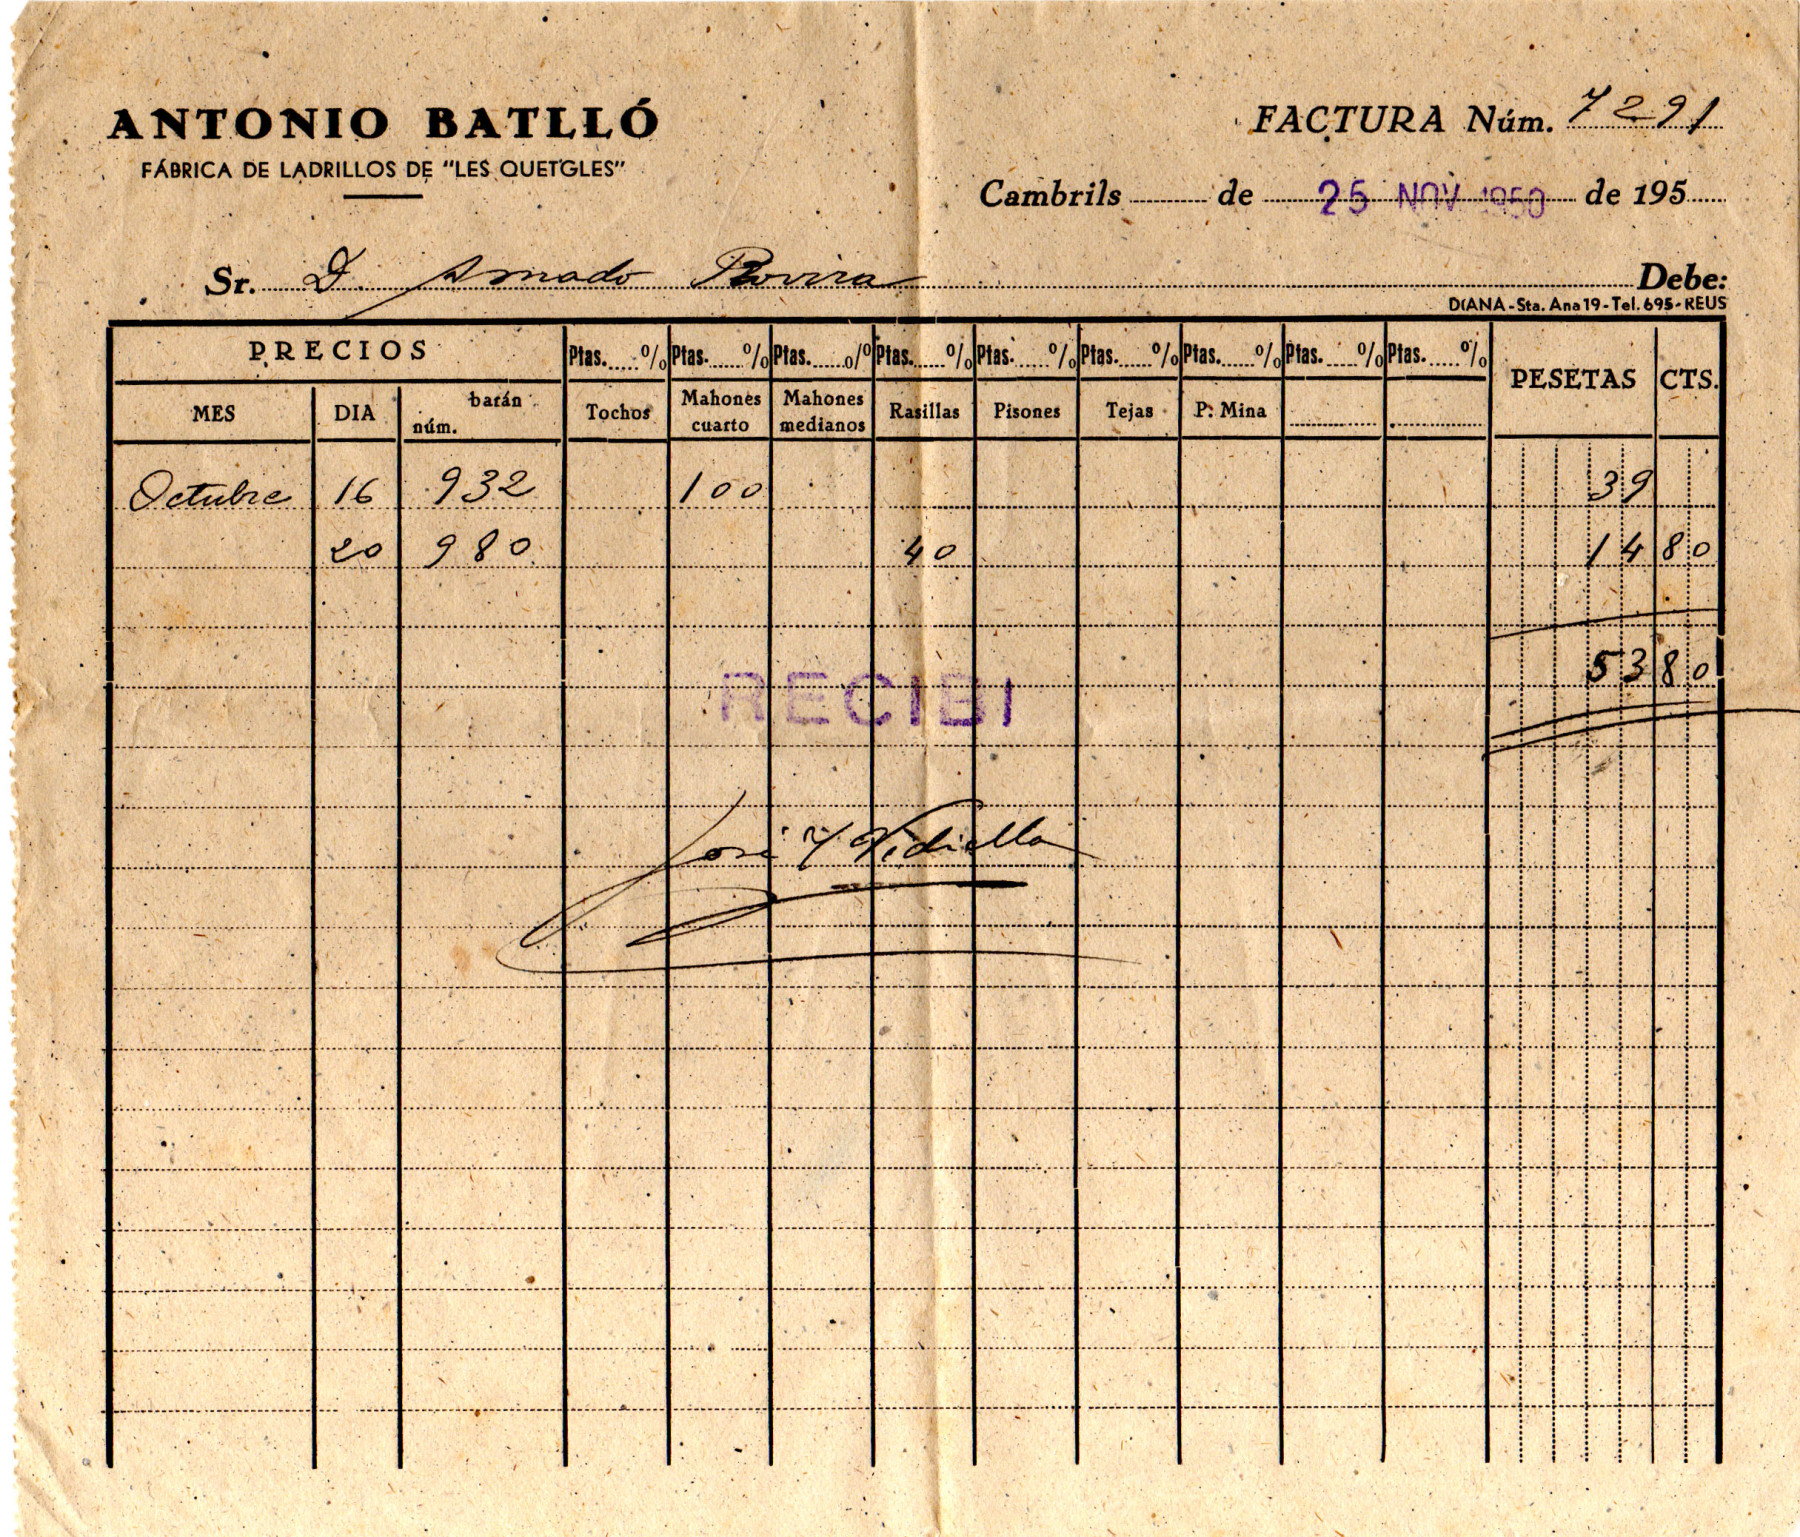 ANTONIO BATLLÓ
FÁBRICA DE LADRILLOS DE "LES QUETGLES"
FACTURA Núm. 7291
Cambrils de 25 NOV 1950 de 195
Sr. D. Amado Rovira Debe:
DIANA - Sta. Ana 19 - Tel. 695 - REUS
PRECIOS Ptas. % Ptas. % Ptas. o/o Ptas. % Ptas. % Ptas. % Ptas. % Ptas. % Ptas. % PESETAS CTS.
MES DIA núm. batán Tochos Mahones cuarto Mahones medianos Rasillas Pisones Tejas P. Mina
Octubre 16 932 100 39
20 980 40 14 80
53 80
RECIBI
José Y Vidiella